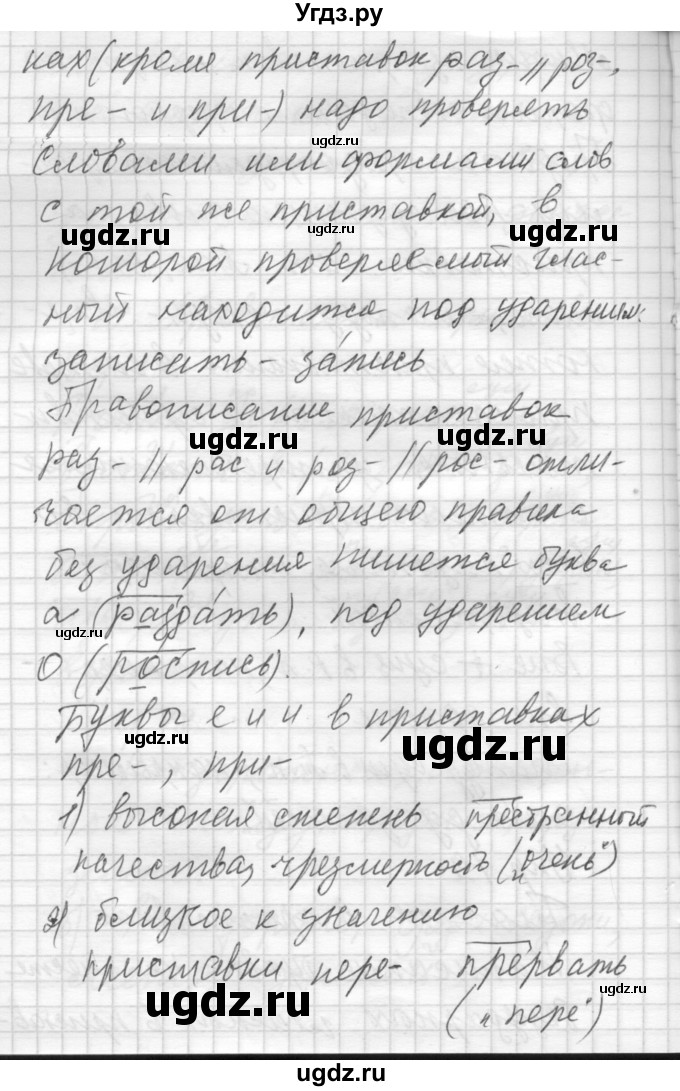 Угдз.ру
ках (кроме приставок раз- // роз-,
пре- и при-) надо проверять
словами или формами слов
с той же приставкой, в
которой проверяемый глас-
ный находится под ударением:
записать - за́пись
Правописание приставок
раз- // рас и роз- // рос- отли-
чается от общего правила
без ударения пишется буква
а (разда́ть), под ударением
о (ро́спись).
Буквы е и и в приставках
пре-, при-
1) высокая степень престранный
качества, чрезмерность („очень")
2) близкое к значению
приставки пере- прервать
(„пере")
ugdz.ru
ugdz.ru
ugdz.ru
ugdz.ru
ugdz.ru
ugdz.ru
ugdz.ru
ugdz.ru
ugdz.ru
ugdz.ru
ugdz.ru
ugdz.ru
ugdz.ru